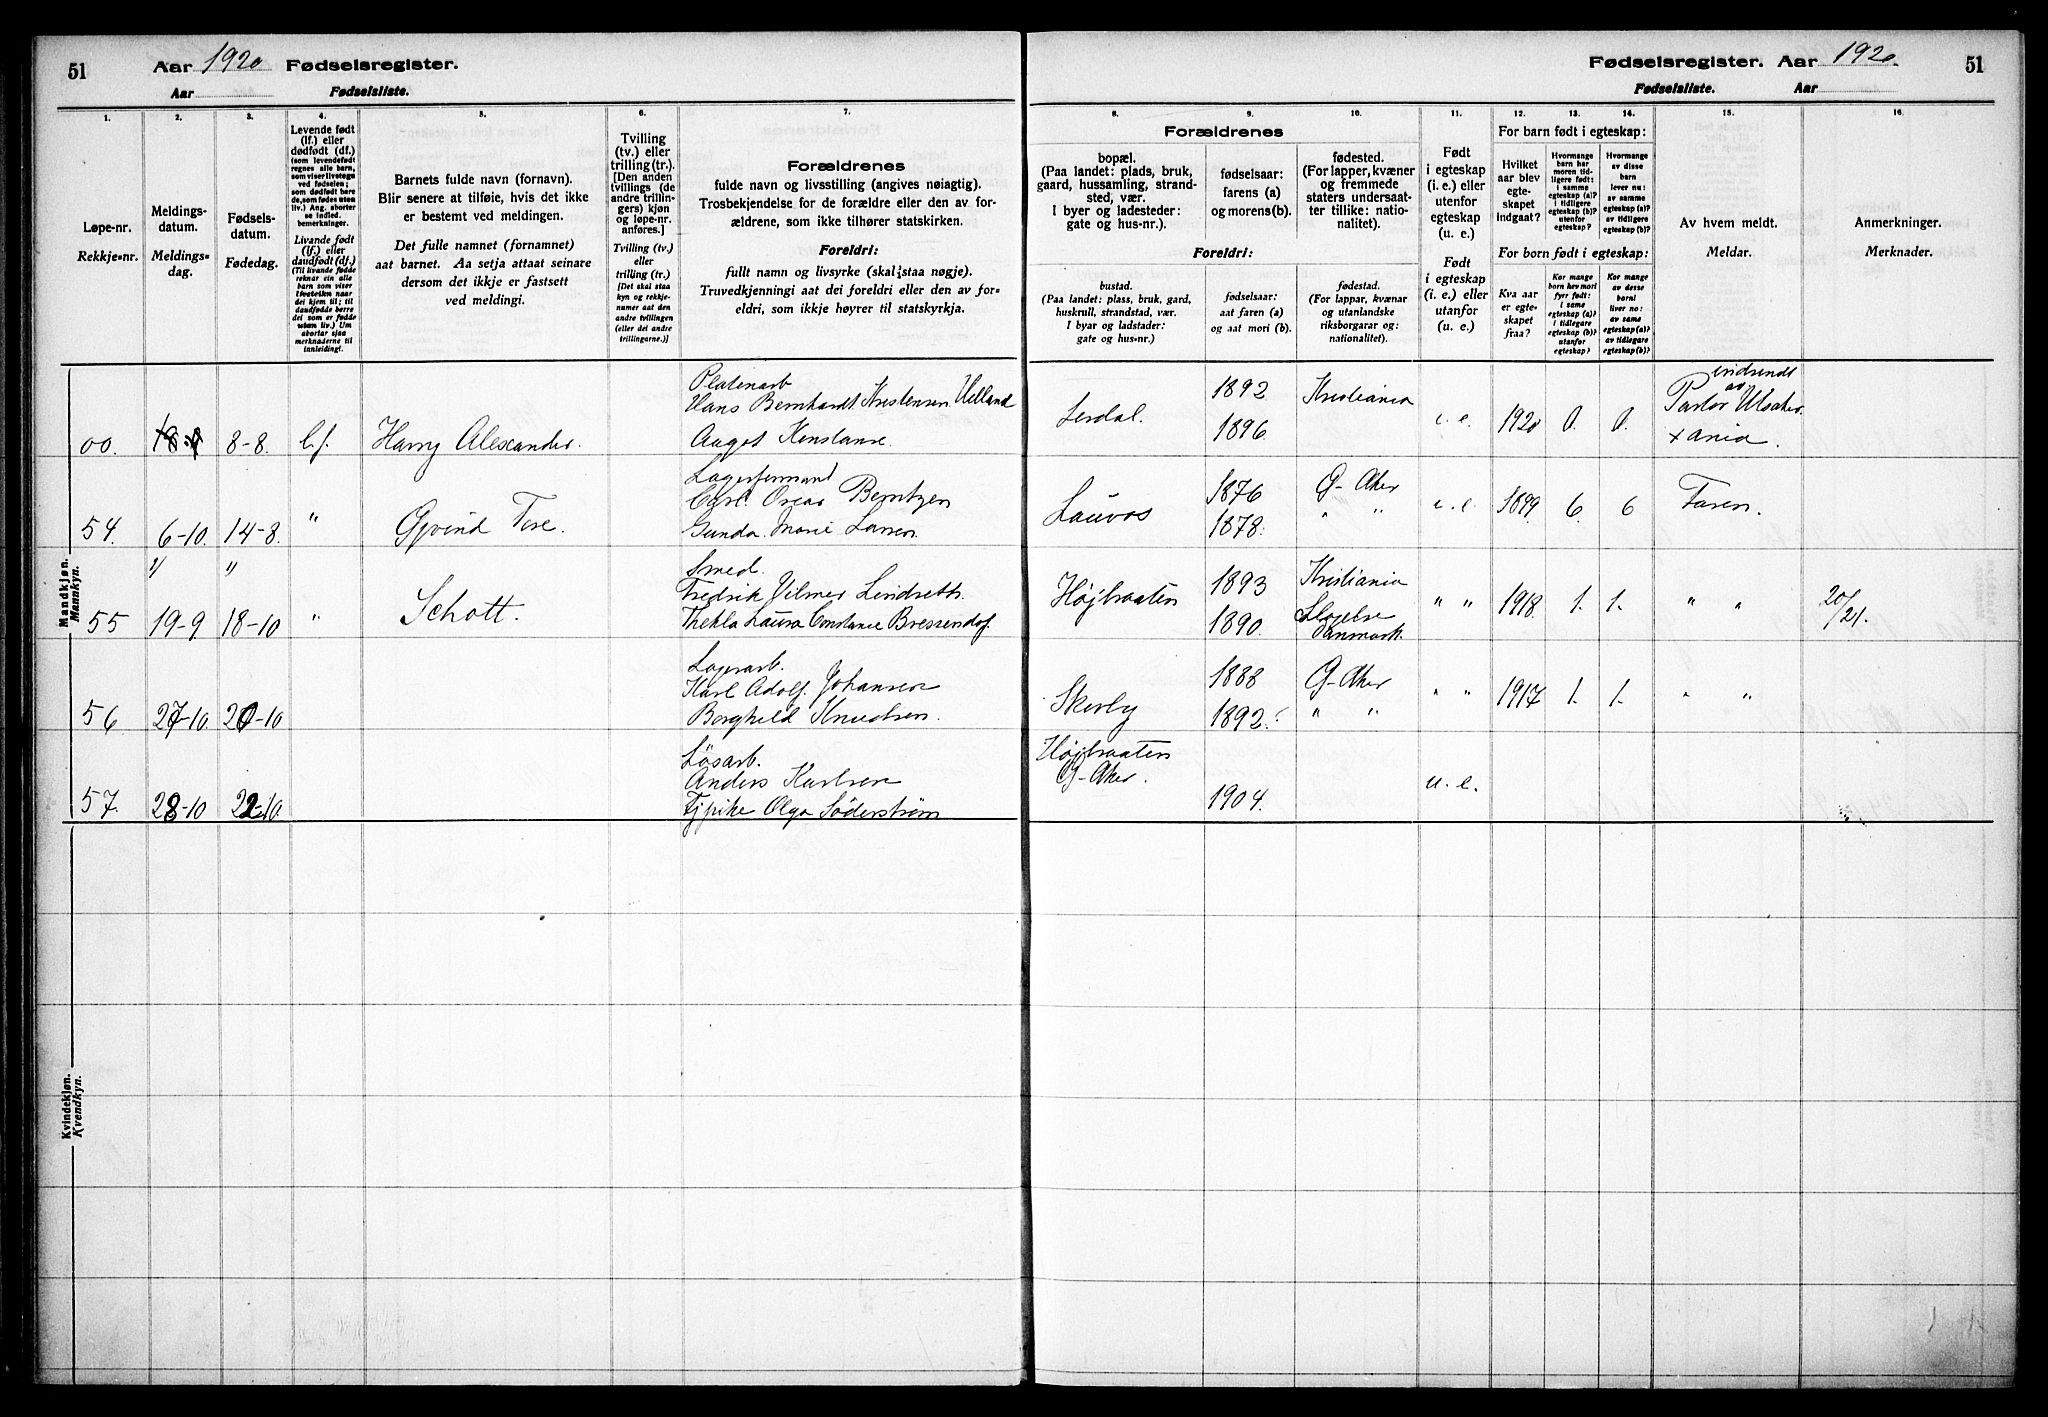 51
Aar 1920 Fødselsregister.
Aar Fødselsliste.
1.
2.
3.
4.
5.
6.
7.
Løpe-nr.
Rekkje-nr.
Meldings-
datum.
Meldings-
dag.
Fødsels-
datum.
Fødedag.
Levende født
(lf.) eller
dødfødt (df.)
(som levendefødt
regnes alle barn,
som viser livstegn
ved fødselen;
som dødfødt bare
de, som fødes uten
liv.) Ang. aborter
se indled.
bemerkninger.
Livande født
(lf.) eller
daudfødt (df.)
(Til livande fødde
reknar ein alle
barn som viser
livsteikn naar
dei kjem til; til
daudfødde berre
dei som er fødde
utan liv.) Um
abortar sjaa
merknaderne til
innleiding!.
Barnets fulde navn (fornavn).
Blir senere at tilføie, hvis det ikke
er bestemt ved meldingen.
Det fulle namnet (fornamnet)
aat barnet. Aa setja attaat seinare
dersom det ikkje er fastsett
ved meldingi.
Tvilling
(tv.) eller
trilling (tr.).
[Den anden
tvillings (de
andre trillin-
gers) kjøn
og løpe-nr.
anføres.]
Tvilling (tv.)
eller
trilling (tr.)
[Det skal staa
kyn og rekkje-
numer aat den
andre tvillingen
(eller dei andre
trillingarne.)]
Forældrenes
fulde navn og livsstilling (angives nøiagtig).
Trosbekjendelse for de forældre eller den av for-
ældrene, som ikke tilhører statskirken.
Foreldri:
fullt namn og livsyrke (skal staa nøgje).
Truvedkjenningi aat dei foreldri eller den av for-
eldri, som ikkje høyrer til statskyrkja.
Mandkjøn.
Mannkyn.
00.
8-8.
lf.
Harry Alexander.
Platenarb
Hans Bernhardt Kristensen Helland
Aagot Konstanse
54.
6-10.
14-8.
"
Gjvind Tore.
Carl Oscar Berntzen
Gunda Marie Larsen
"
"
55
19-9
18-10
"
Schott.
Smed.
Fredrik Vilmer Lindseth.
Thekla Laura Constance Bressendof.
56
27-10
20-10
Lagerarb.
Karl Adolf Johansen
Borghild Knudsen.
57.
28-10
22-10.
Løsarb.
Anders Karlsen
Tjpike Olga Söderstrøm
Kvindekjøn.
Kvendkyn.
Fødselsregister. Aar 1920.
51
Fødselsliste. Aar
8.
9.
10.
11.
12.
13.
14.
15.
16.
Forældrenes
bopæl.
(Paa landet: plads, bruk,
gaard, hussamling, strand-
sted, vær.
I byer og ladesteder:
gate og hus-nr.).
fødselsaar:
farens (a)
og morens (b).
fødested.
(For lapper, kvæner
og fremmede
staters undersaat-
ter tillike: natio-
nalitet).
Foreldri:
bustad.
(Paa landet: plass, bruk, gard,
huskrull, strandstad, vær.
I byar og ladstader:
gate og hus-nr.)
fødselsaar:
aat faren (a)
og aat mori (b).
fødestad.
(For lappar, kvænar
og utanlandske
riksborgarar og:
nationalitet.)
Født
i egteskap
(i. e.) eller
utenfor
egteskap
(u. e.)
Født
i egteskap
(i. e.) eller
utanfor
(u. e.)
For barn født i egteskap:
Hvilket
aar blev
egte-
skapet
indgaat?
Hvormange
barn har
moren tid-
ligere født:
i samme
egteskap (a)?
i tidligere
egteskap (b)?
utenfor
egteskap?
Hvormange
av disse
barn
lever nu:
av samme
egteskap (a)?
av tidligere
egteskap (b)?
For born født i egteskap:
Kva aar
er egte-
skapet
fraa?
Kor mange
born hev mori
fyrr født:
i same
egteskap (a)?
i tidlegare
egteskap (b)?
utanfor
egteskap?
Kor mange
av desse
borni
liver no:
av same
egteskap (a)?
av tidlegare
egteskap (b)?
Av hvem meldt.
Meldar.
Anmerkninger.
Merknader.
Lerdal.
1892
1896.
Kristiania
i. e.
1920
0.
0.
indsendt
av
Pastor Ulsaker
xania.
Lauvos
1876
1878.
Ø-Aker
" "
i. e.
1899
6.
6
Faren.
Højbraaten
1893
1890.
Kristiania
Slagelse
Danmark.
" "
1918.
1.
1.
" "
20/21.
Skoxby
1888
1892.
Ø-Aker
" "
" "
1917
1.
1.
" "
Højbraaten
Ø-Aker.
1904.
u. e.